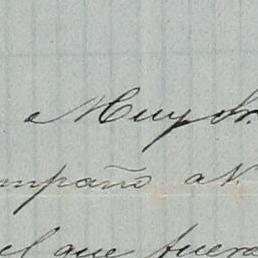 Muy Sr.
mpaño a V.
el que fuera